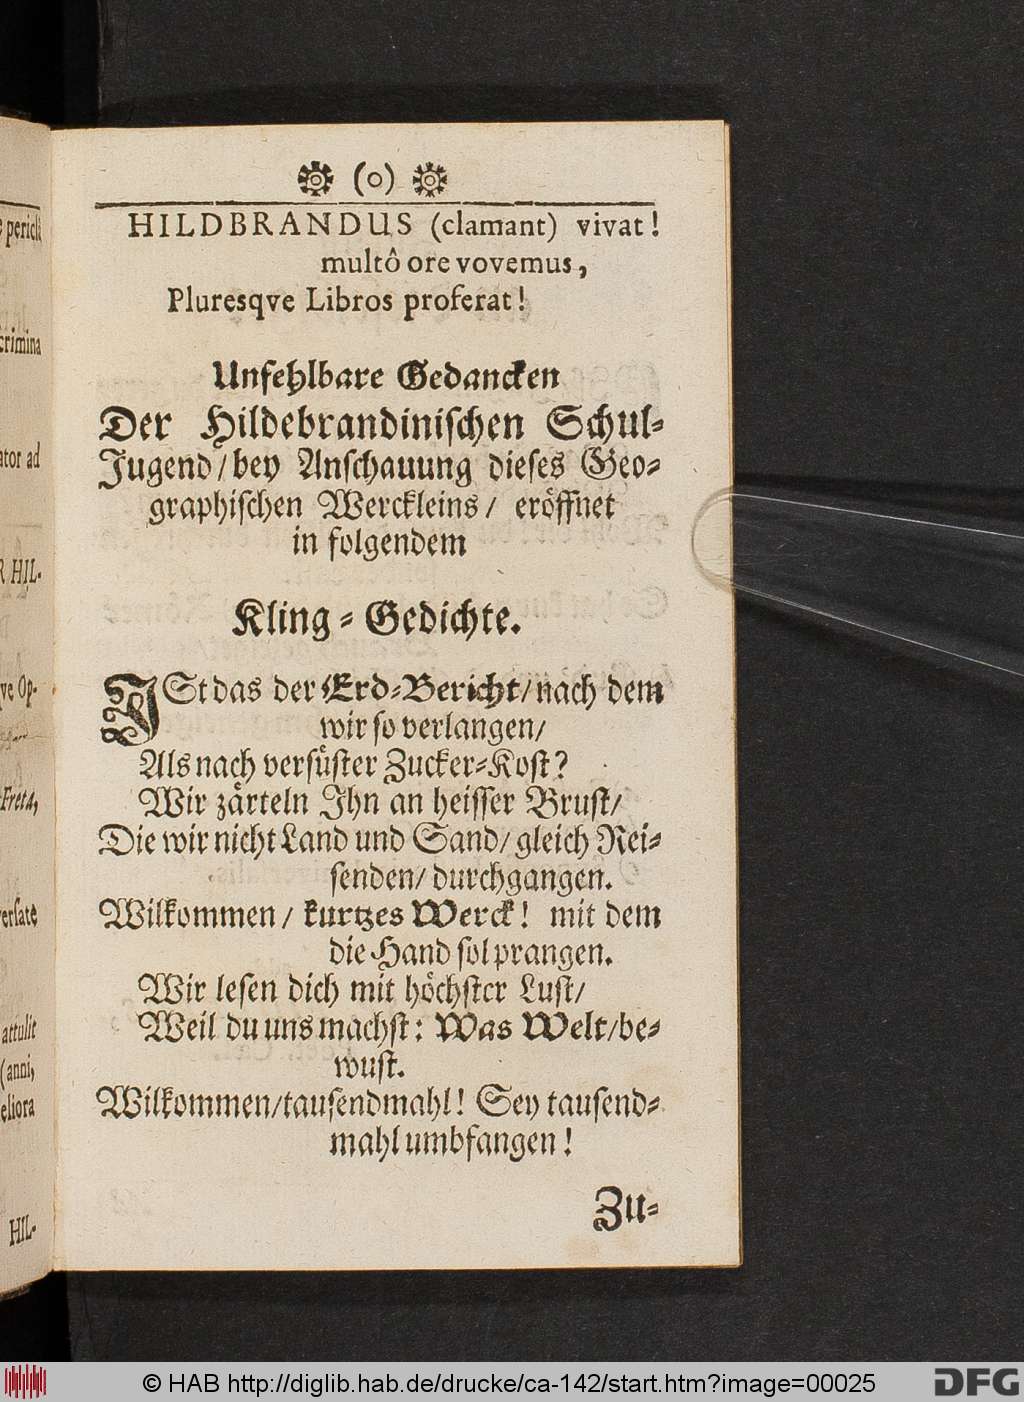 (o)
HILDBRANDUS (clamant) vivat!
multô ore vovemus,
Pluresqve Libros proferat!
Unfehlbare Gedancken
Der Hildebrandinischen Schul-
Jugend/ bey Anschauung dieses Geo-
graphischen Werckleins/ eröffnet
in folgendem
Kling-Gedichte.
JSt das der Erd-Bericht/ nach dem
wir so verlangen/
Als nach versüster Zucker-Kost?
Wir zärteln Jhn an heisser Brust/
Die wir nicht Land und Sand/ gleich Rei-
senden/ durchgangen.
Wilkommen/ kurtzes Werck! mit dem
die Hand sol prangen.
Wir lesen dich mit höchster Lust/
Weil du uns machst: Was Welt/ be-
wust.
Wilkommen/ tausendmahl! Sey tausend-
mahl umbfangen!
Zu-
crimina
ator ad
R HIL-
ve Op-
Freta,
versate
attulit
(anni,
eliora
HIL-
© HAB http://diglib.hab.de/drucke/ca-142/start.htm?image=00025
DFG